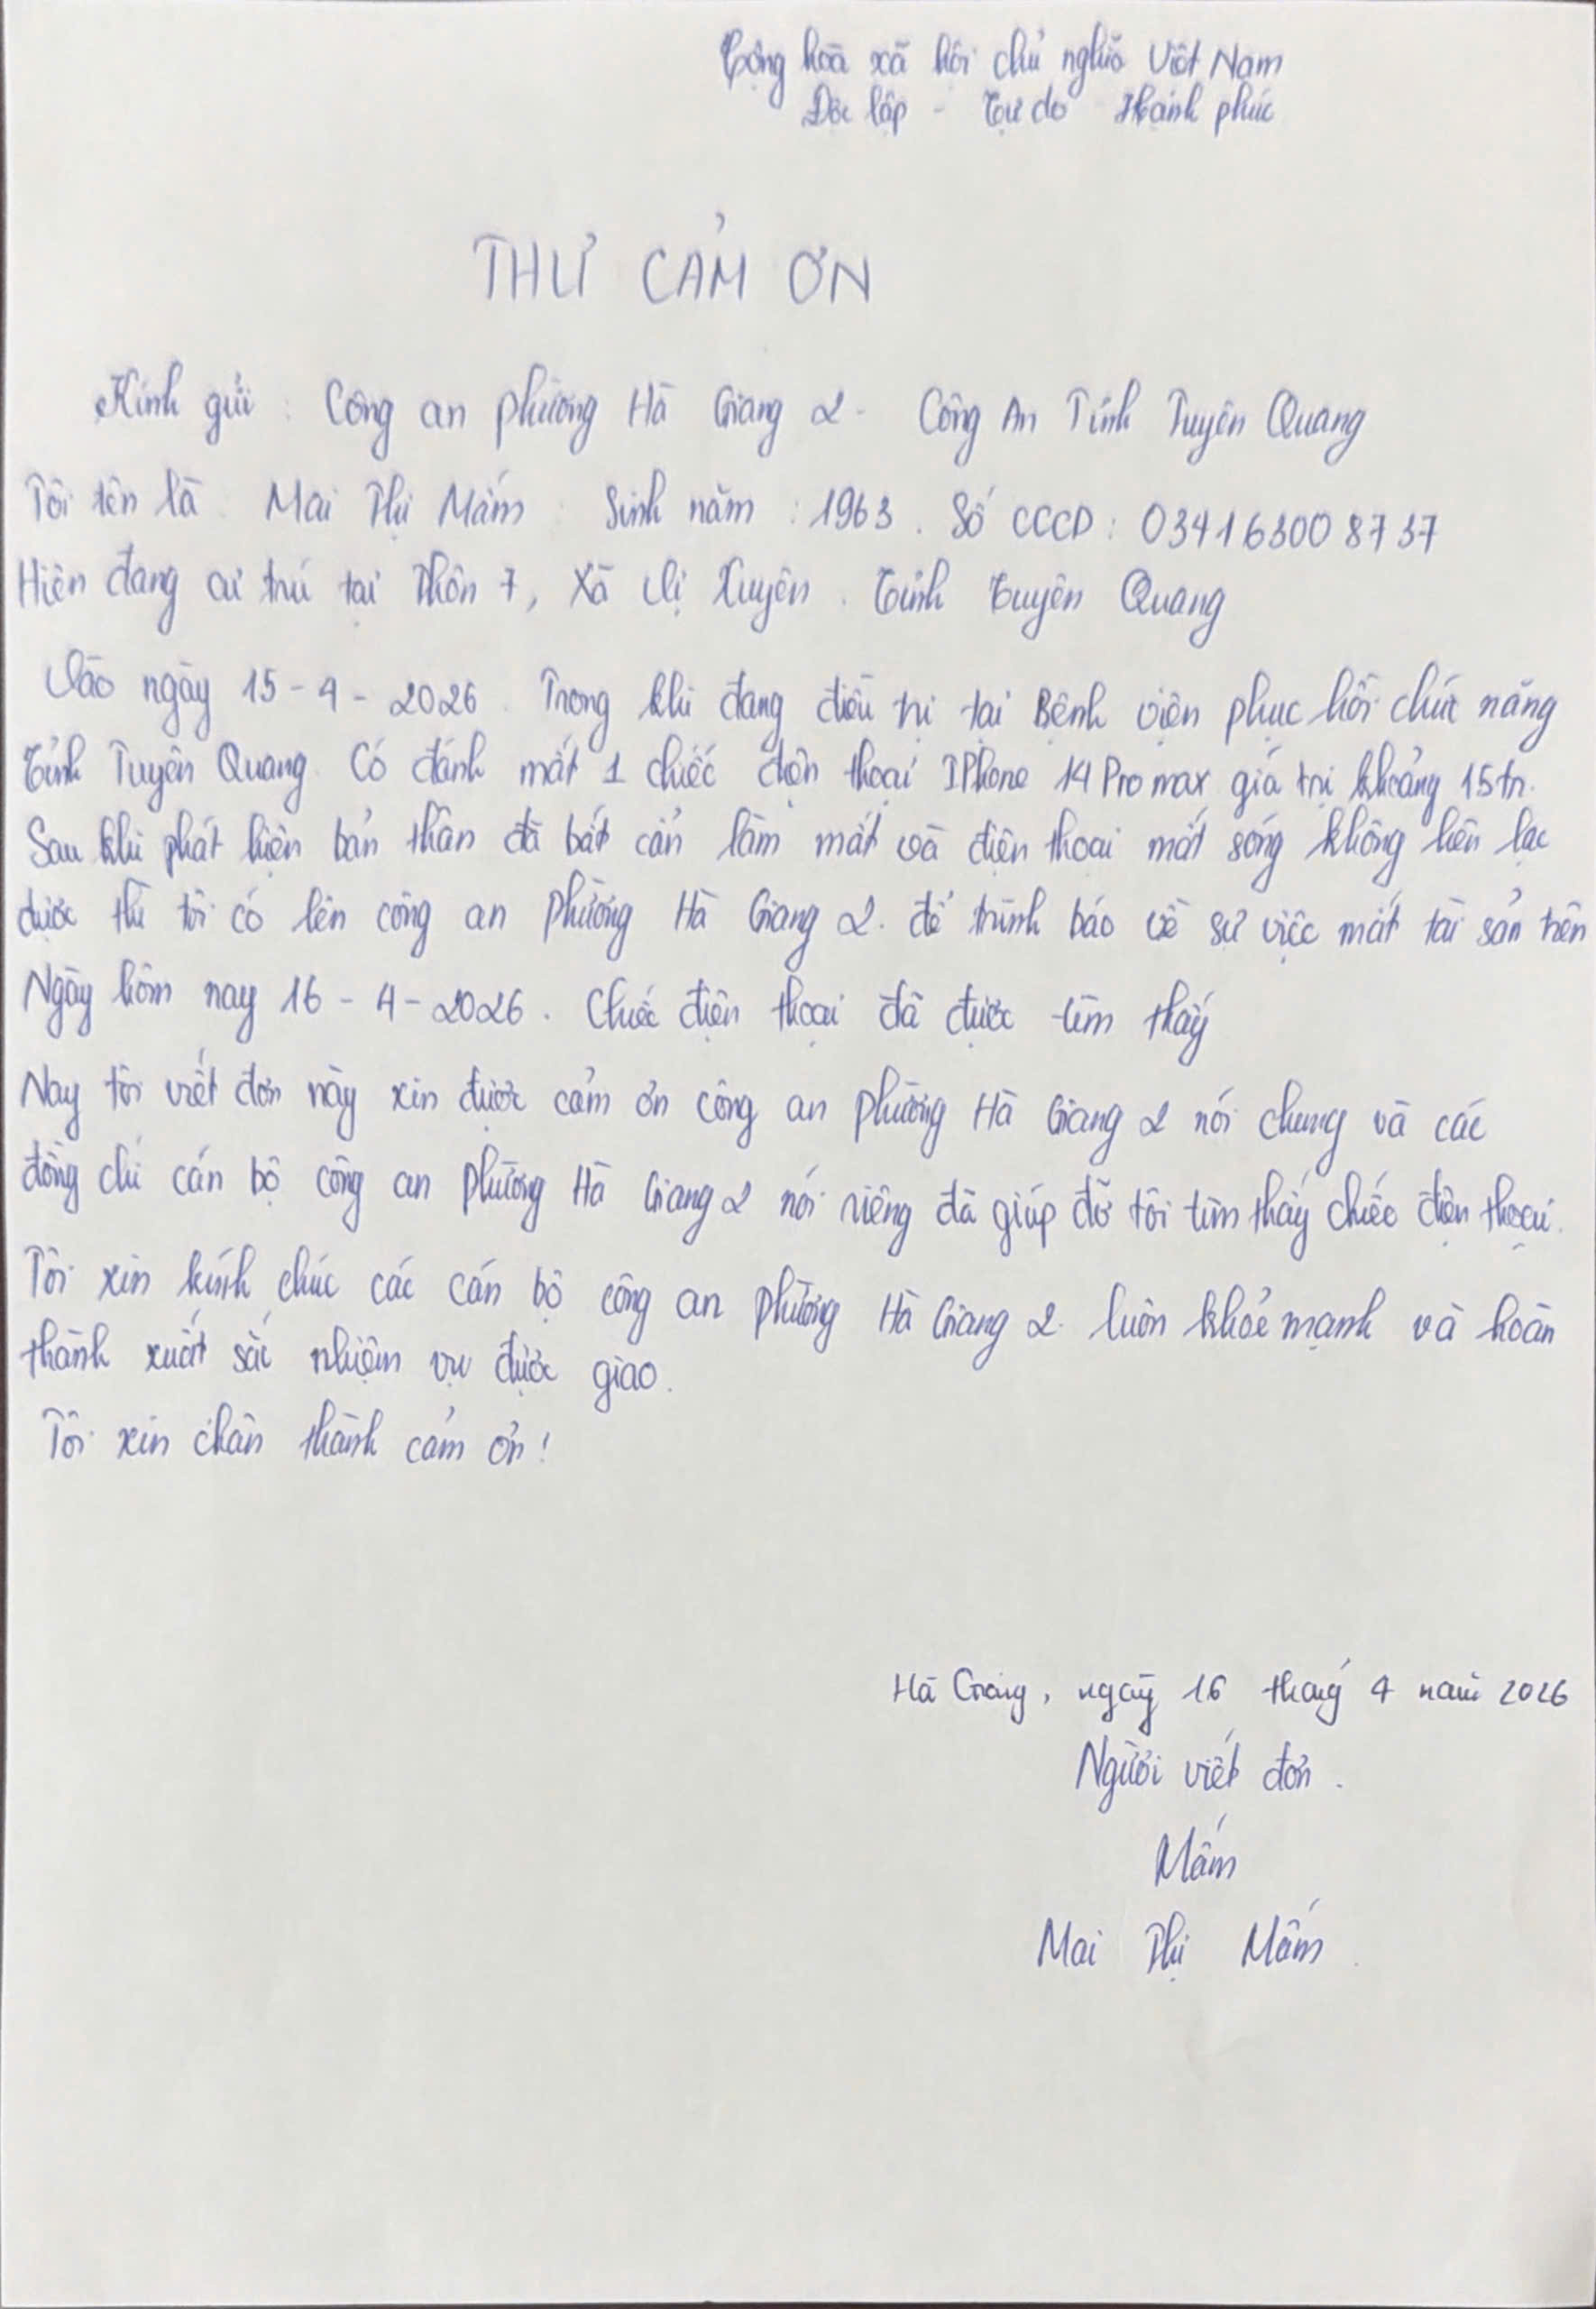 Cộng hoà xã hội chủ nghĩa Việt Nam
Độc lập - Tự do Hạnh phúc
THƯ CẢM ƠN
Kính gửi : Công an phường Hà Giang 2 - Công An Tỉnh Tuyên Quang
Tôi tên là Mai Thị Mấm Sinh năm : 1963 . Số CCCD : 034163008737
Hiện đang cư trú tại Thôn 7, Xã Vị Xuyên . Tỉnh Tuyên Quang
Vào ngày 15 - 4 - 2026 . Trong khi đang điều trị tại Bệnh viện phục hồi chức năng
Tỉnh Tuyên Quang. Có đánh mất 1 chiếc điện thoại IPhone 14 Pro max giá trị khoảng 15tr.
Sau khi phát hiện bản thân đã bất cẩn làm mất và điện thoại mất sóng không liên lạc
được thì tôi có lên công an phường Hà Giang 2. để trình báo về sự việc mất tài sản trên
Ngày hôm nay 16 - 4 - 2026 . Chiếc điện thoại đã được tìm thấy
Nay tôi viết đơn này xin được cảm ơn công an phường Hà Giang 2 nói chung và các
đồng chí cán bộ công an phường Hà Giang 2 nói riêng đã giúp đỡ tôi tìm thấy chiếc điện thoại.
Tôi xin kính chúc các cán bộ công an phường Hà Giang 2. luôn khoẻ mạnh và hoàn
thành xuất sắc nhiệm vụ được giao.
Tôi xin chân thành cảm ơn !
Hà Giang, ngày 16 tháng 4 năm 2026
Người viết đơn .
Mấm
Mai Thị Mấm